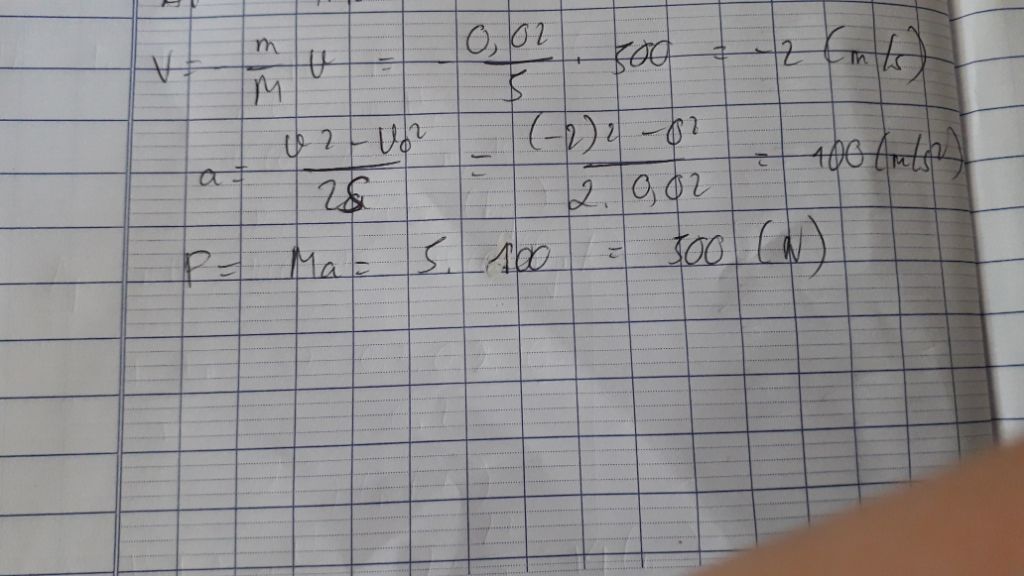 V = - m/M v = - 0,02/5 . 500 = -2 (m/s)
a = v² - v₀²/2s = (-2)² - 0²/2. 0,02 = 100 (m/s²)
F = Ma = 5. 100 = 500 (N)